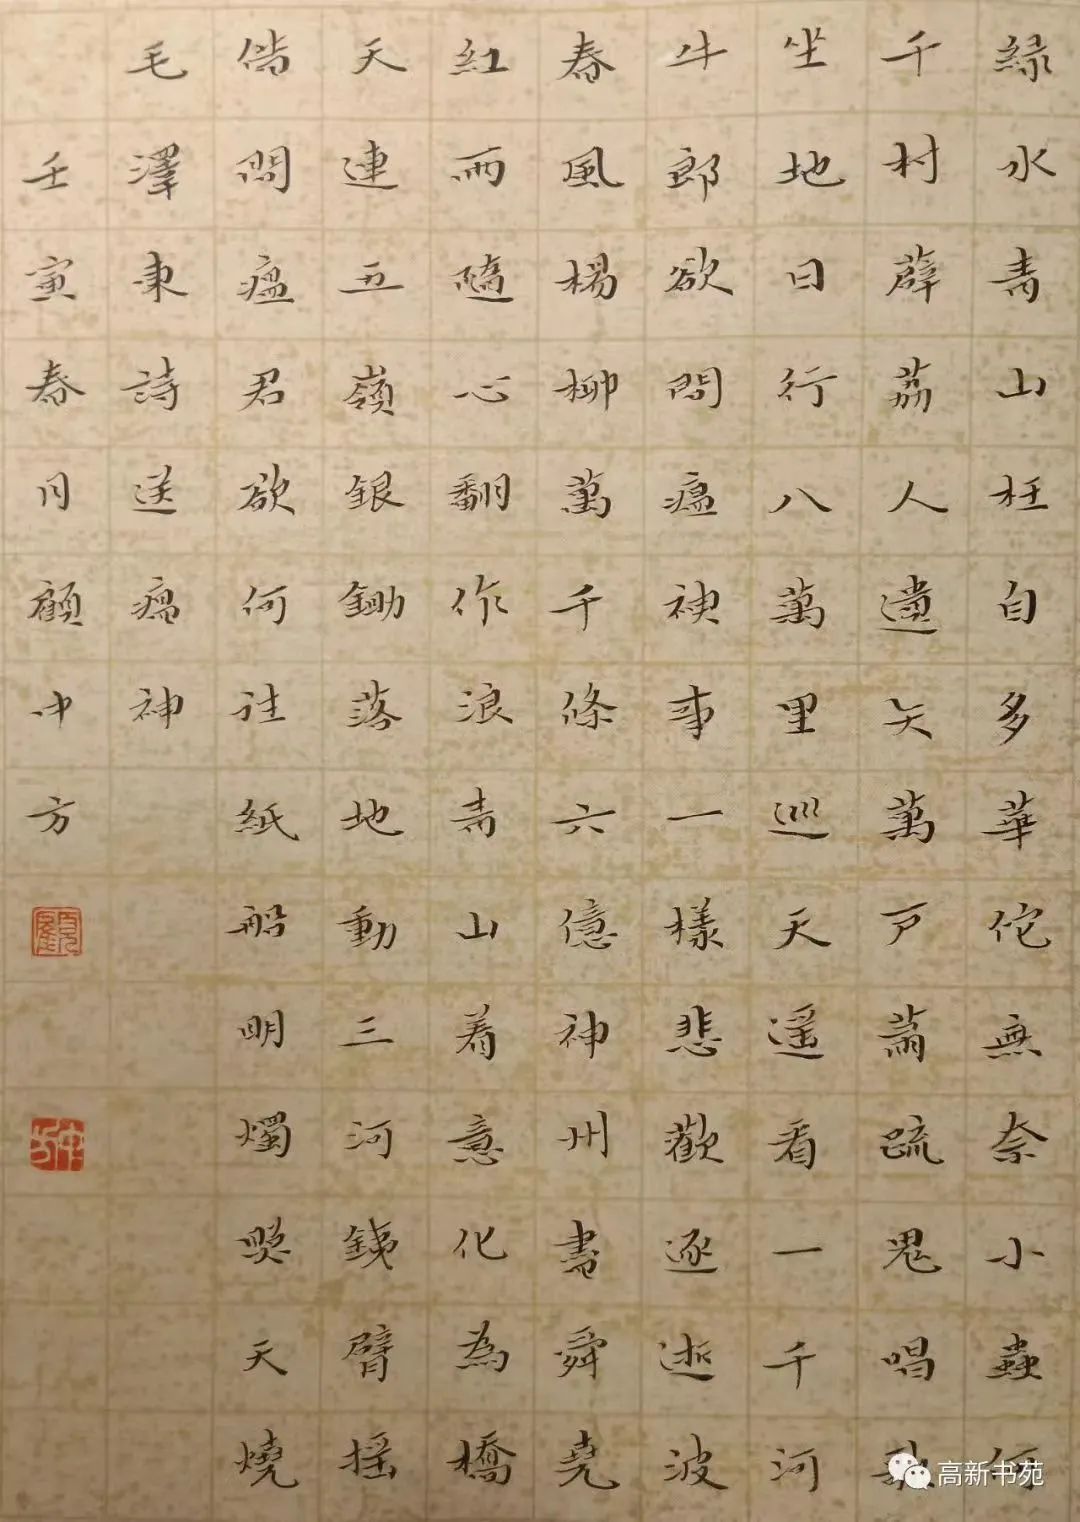 綠水青山枉自多華佗無奈小蟲何
千村薜荔人遺矢萬戶蕭疏鬼唱歌
坐地日行八萬里巡天遥看一千河
牛郎欲問瘟神事一樣悲歡逐逝波
春風楊柳萬千條六億神州書舜堯
紅雨隨心翻作浪青山着意化為橋
天連五嶺銀鋤落地動三河銕臂摇
借問瘟君欲何往紙船明燭照天燒
毛澤東詩送瘟神
壬寅春月顧中方
顧
中方
高新书苑